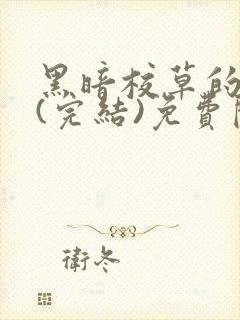 黑暗校草的
(完結)免費
衛冬